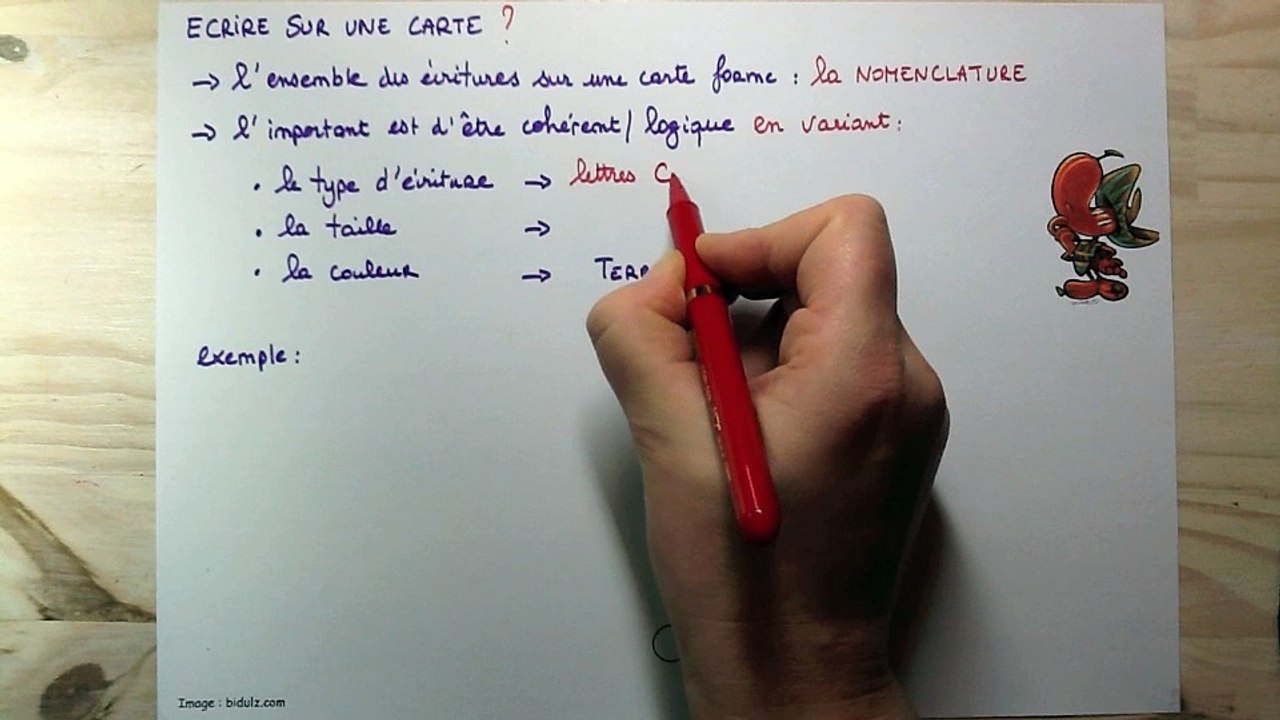 ECRIRE SUR UNE CARTE ?
→ l'ensemble des écritures sur une carte forme : la NOMENCLATURE
→ l'important est d'être cohérent/logique en variant :
• le type d'écriture → lettres C
• la taille →
• la couleur → TERR
exemple :
Image : bidulz.com